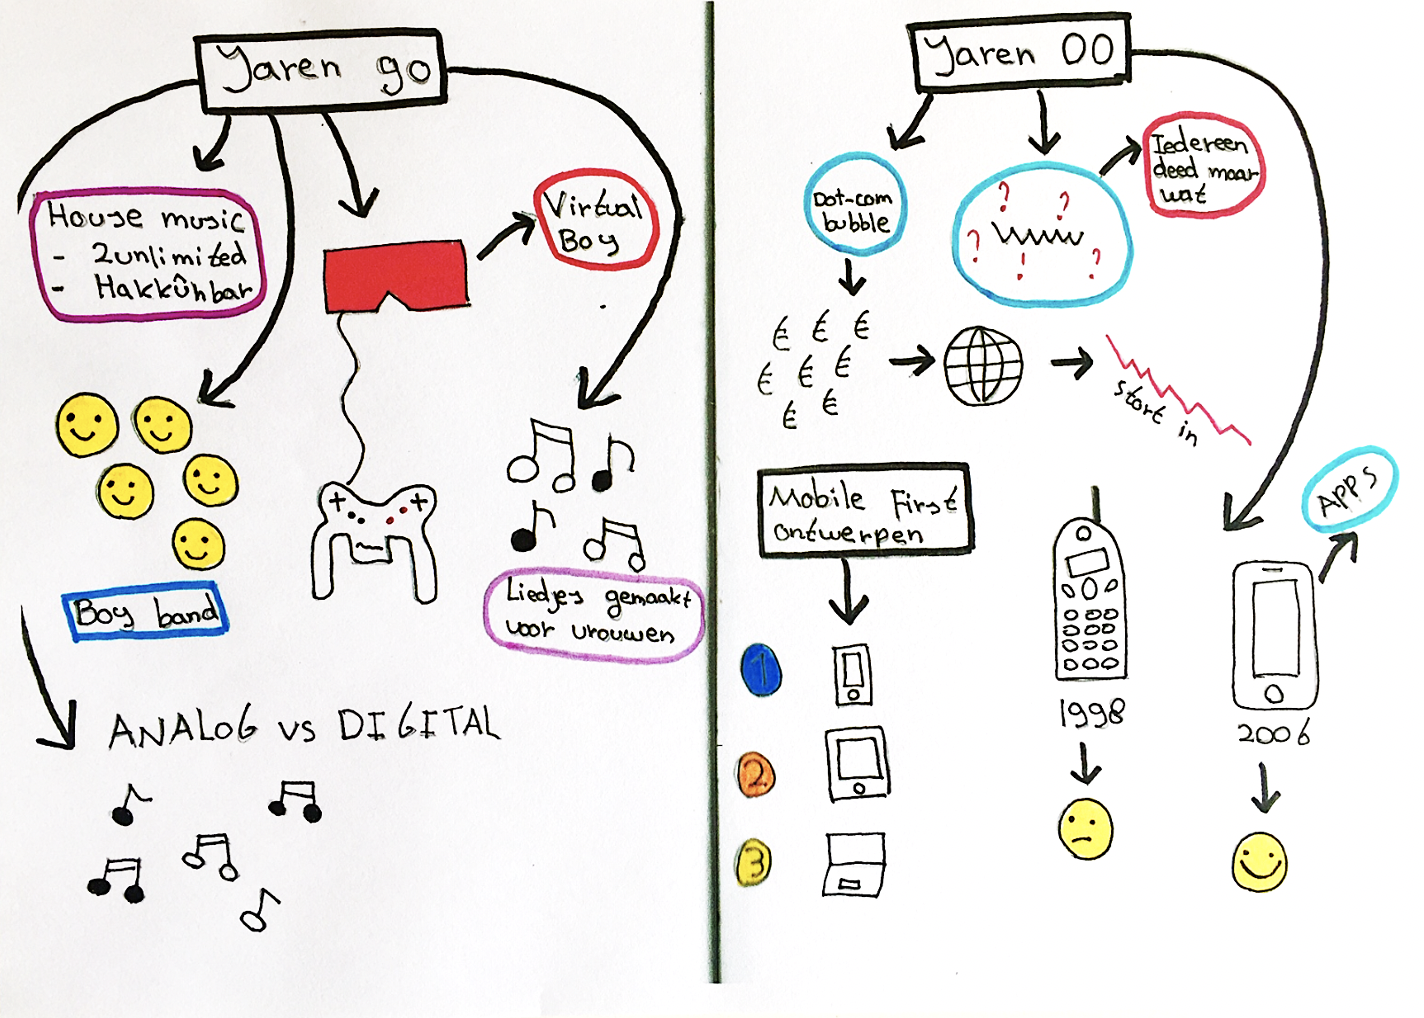 Jaren 90
House music
- 2unlimited
- Hakkûhbar
Virtual
Boy
Boy band
Liedjes gemaakt
voor vrouwen
ANALOG vs DIGITAL
Jaren 00
Dot-com
bubble
? ?
? wwww
! ?
Iedereen
deed maar
wat
€ € €
€ € €
€ €
stort in
Mobile First
ontwerpen
1
2
3
1998
APPS
2006